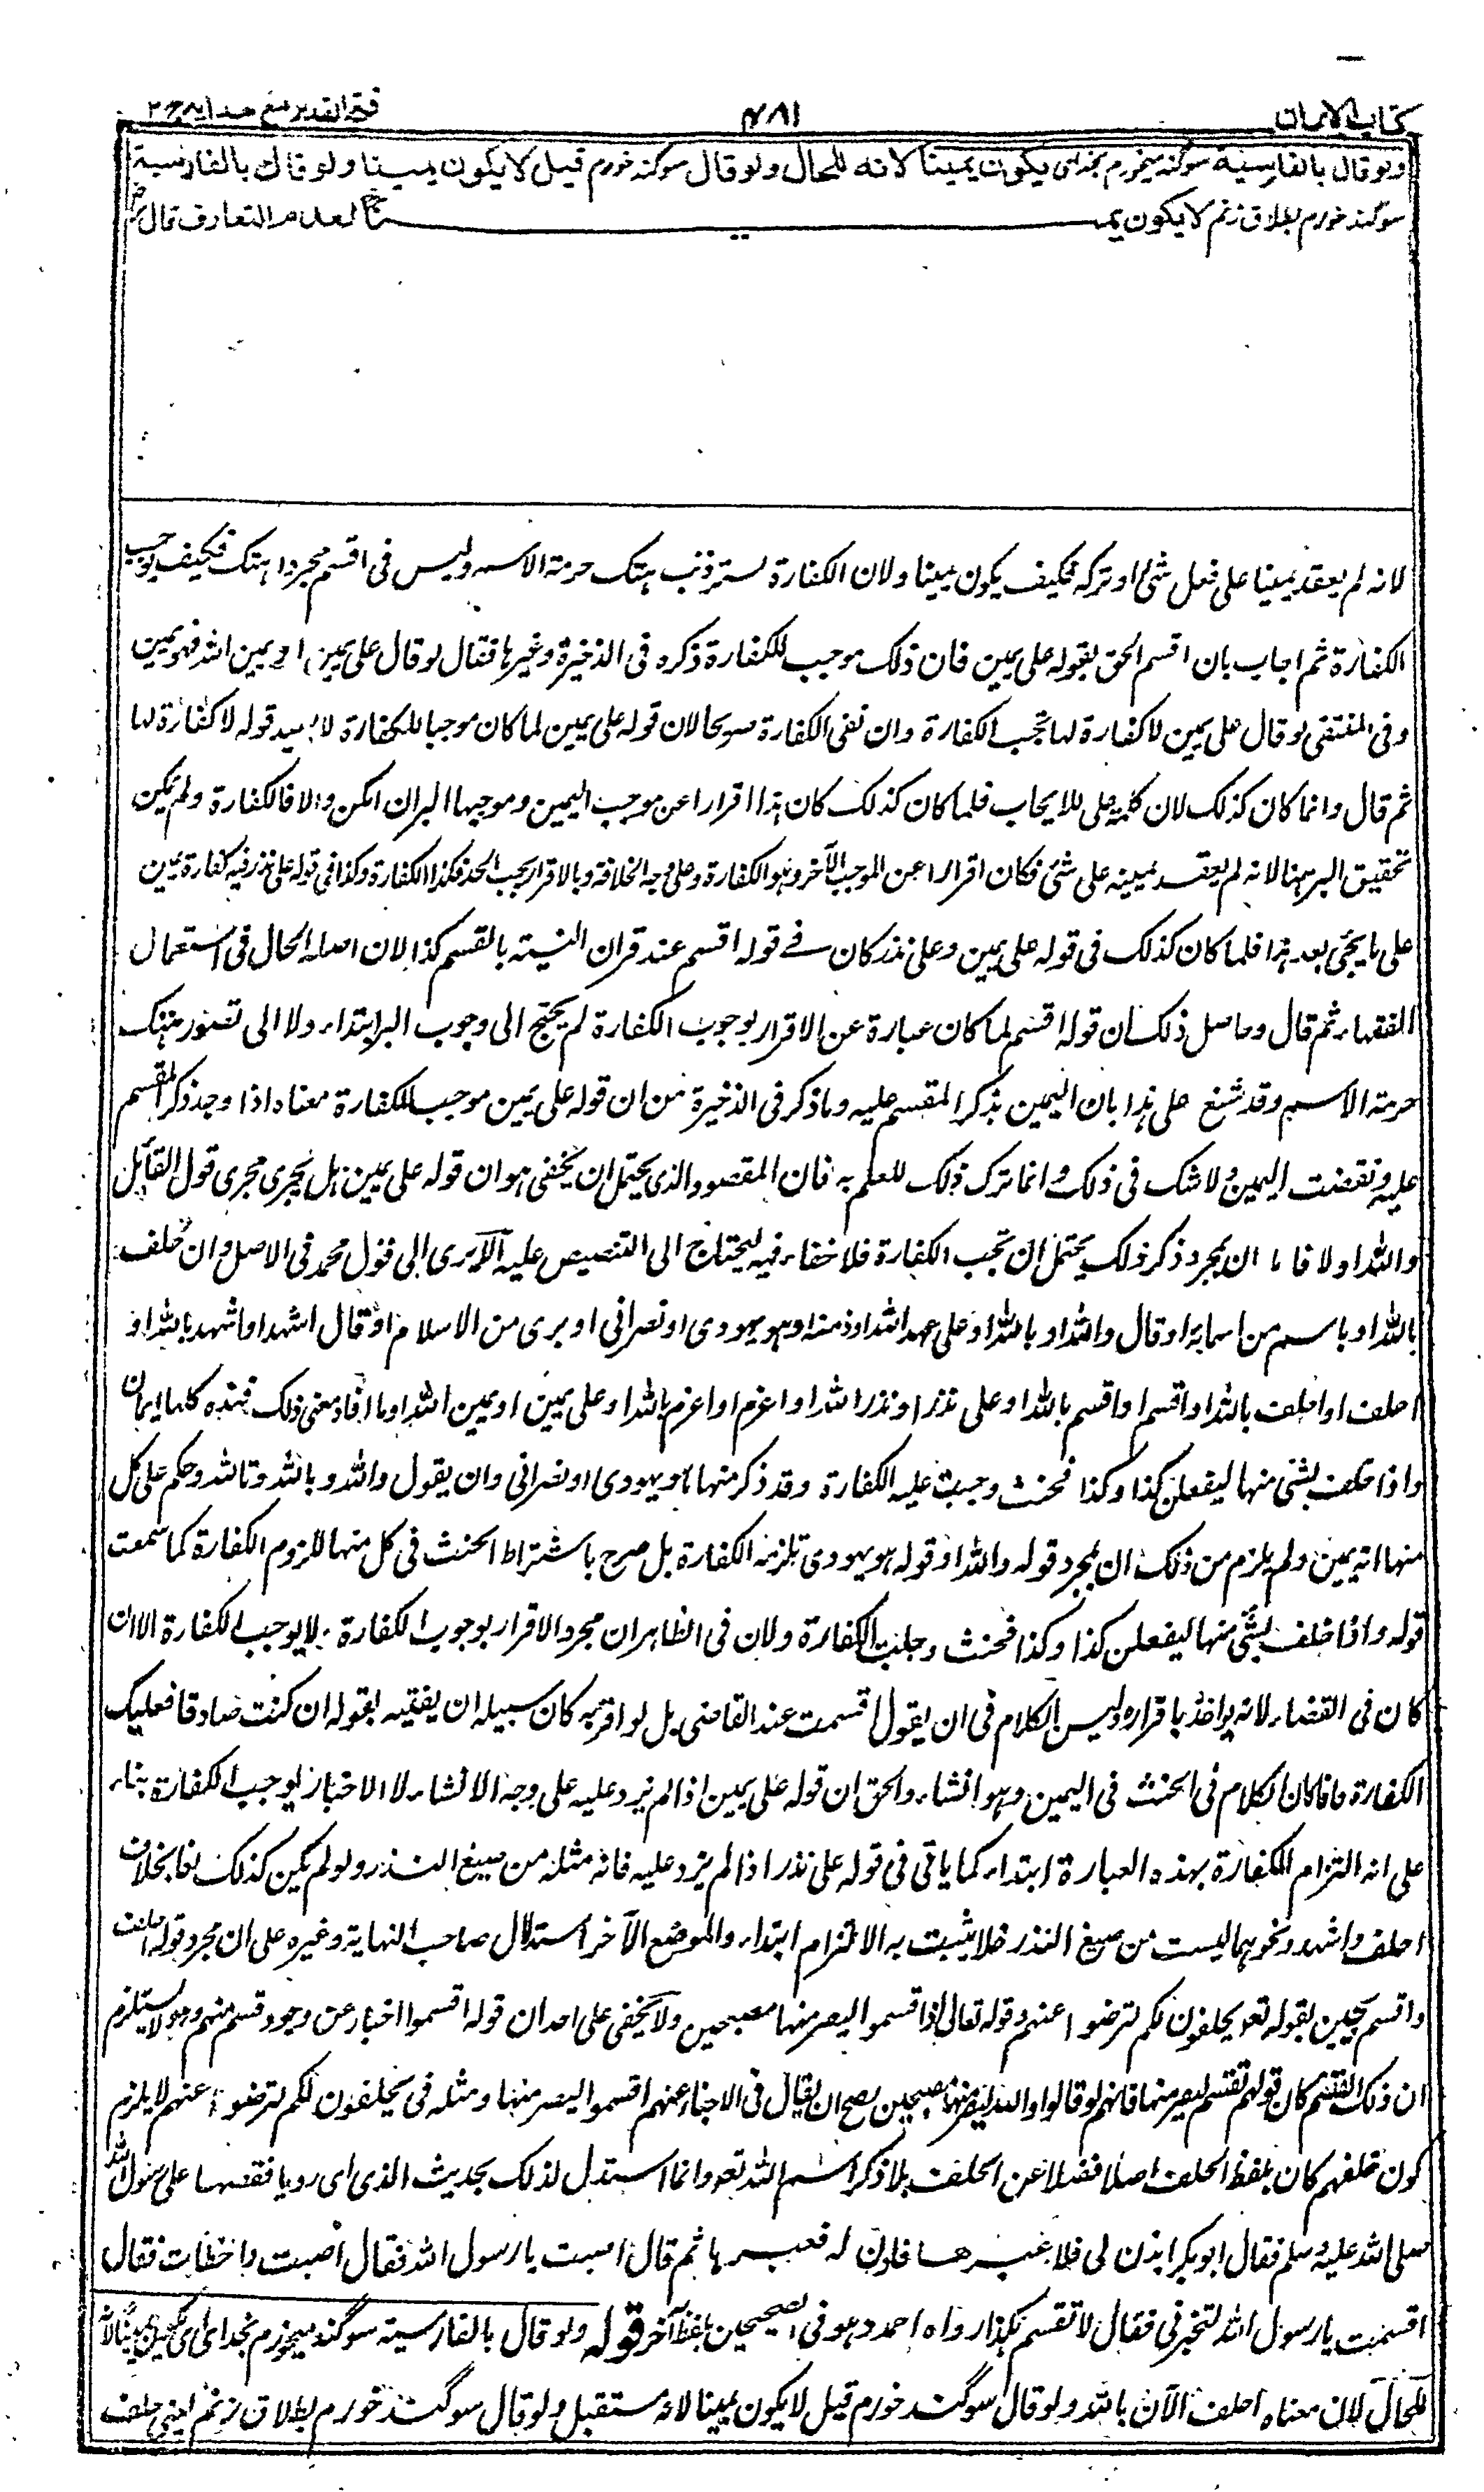 كتاب الايمان ٤٨١ فتح القدير مع هدايه ج٢
ولو قال بالفارسية سوگند ميخورم بخدای يكون يمينا لانه للحال ولو قال سوگند خورم قيل لا يكون يمينا ولو قال بالفارسية
سوگند خورم بطلاق زنم لا يكون يمينا لعدم التعارف قال
لانه لم يعقد يمينا على فعل شئ او تركه فكيف يكون يمينا ولان الكفارة لستر ذنب هتك حرمة الاسم وليس فى اقسم مجردا هتك فكيف يوجب
الكفارة ثم اجاب بان اقسم الحق بقوله على يمين فان ذلك موجب للكفارة ذكره فى الذخيرة وغيرها فقال لو قال على يمين او يمين الله فهو يمين
وفى المنتقى لو قال على يمين لا كفارة لها تجب الكفارة وان نفى الكفارة صريحا لان قوله على يمين لما كان موجبا للكفارة لا يفيد قوله لا كفارة لها
ثم قال وانما كان كذلك لان كلمة على للايجاب فلما كان كذلك كان هذا اقرارا عن موجب اليمين وموجبها البر ان امكن والا فالكفارة ولم يمكن
تحقيق البر ههنا لانه لم يعقد يمينه على شئ فكان اقرارا عن الموجب الآخر وهو الكفارة وعلى وجه الخلافة وبالاقرار يجب الحد فكذا الكفارة وكذا فى قوله على نذر فيه كفارة يمين
على ما يجئ بعد هذا فلما كان كذلك فى قوله على يمين وعلى نذر كان فى قوله اقسم عند قران النية بالقسم كذا لان اصله الحال فى استعمال
الفقهاء ثم قال وحاصل ذلك ان قوله اقسم لما كان عبارة عن الاقرار بوجوب الكفارة لم يحتج الى وجوب البر ابتداء ولا الى تصور هتك
حرمة الاسم وقد شنع على هذا بان اليمين بذكر المقسم عليه وما ذكر فى الذخيرة من ان قوله على يمين موجب للكفارة معناه اذا وجد ذكر المقسم
عليه ونقضت اليمين ولا شك فى ذلك وانما ترك ذلك للعلم به فان المقصود الذى يحتمل ان يخفى هو ان قوله على يمين هل يجرى مجرى قول القائل
والله او لا فاما ان بمجرد ذكر ذلك يحتمل ان تجب الكفارة فلا خفاء فيه ليحتاج الى التنصيص عليه الا يرى الى قول محمد فى الاصل وان حلف
بالله او باسم من اسمائه او قال والله او بالله او على عهد الله او ذمته او هو يهودى او نصرانى او برى من الاسلام او قال اشهد او اشهد بالله او
احلف او احلف بالله او اقسم او اقسم بالله او على نذر او نذر الله او اعزم او اعزم بالله او على يمين او يمين الله او ما افاد معنى ذلك فهذه كلها ايمان
واذا حلف بشئ منها ليفعلن كذا وكذا فحنث وجبت عليه الكفارة وقد ذكر منها هو يهودى او نصرانى وان يقول والله وبالله وتالله وحكم على كل
منها انه يمين ولم يلزم من ذلك ان بمجرد قوله والله او قوله هو يهودى تلزمه الكفارة بل صرح باشتراط الحنث فى كل منها للزوم الكفارة كما سمعت
قوله واذا حلف بشئ منها ليفعلن كذا وكذا فحنث وجبت الكفارة ولان فى الظاهر ان مجرد الاقرار بوجوب الكفارة لا يوجب الكفارة الا ان
كان فى القضاء لانه يؤاخذ باقراره وليس الكلام فى ان يقول اقسمت عند القاضى بل لو اقر به كان سبيله ان يفتيه بقوله ان كنت صادقا فعليك
الكفارة وانما كان الكلام فى الحنث فى اليمين وهو انشاء والحق ان قوله على يمين اذا لم يزد عليه على وجه الانشاء لا الاخبار يوجب الكفارة بناء
على انه التزام الكفارة بهذه العبارة ابتداء كما ياتى فى قوله على نذر اذا لم يزد عليه فانه مثله من صيغ النذر ولو لم يكن كذلك لغا بخلاف
احلف واشهد ونحوهما ليست من صيغ النذر فلا يثبت به الالتزام ابتداء والموضع الآخر استدلال صاحب النهاية وغيره على ان مجرد قوله احلف
واقسم يمين بقوله تعو يحلفون لكم لترضوا عنهم وقوله تعالى اذ اقسموا ليصرمنها مصبحين ولا يخفى على احد ان قوله اقسموا اخبار عن وجود قسم منهم وهو لا يستلزم
ان ذلك القسم كان قولهم نقسم ليصرمنها فانهم لو قالوا والله ليصرمنها مصبحين يصح ان يقال فى الاخبار عنهم اقسموا ليصرمنها ومثله فى يحلفون لكم لترضوا عنهم لا يلزم
كون حلفهم كان بلفظ الحلف اصلا فضلا عن الحلف بلا ذكر اسم الله تعو وانما استدل لذلك بحديث الذى اى رويا فقصها على رسول الله
صلى الله عليه وسلم فقال ابو بكر ايذن لى فلاعبرها فاذن له فعبرها ثم قال اصبت يا رسول الله فقال اصبت واخطات فقال
اقسمت يا رسول الله لتخبرنى فقال لا تقسم هكذا رواه احمد وهو فى الصحيحين بلفظ آخر قوله ولو قال بالفارسية سوگند ميخورم بخدای اى يكون يمينا لانه
للحال لان معناه احلف الآن بالله ولو قال سوگند خورم قيل لا يكون يمينا لانه مستقبل ولو قال سوگند خورم بطلاق زنم اعنى حلفت